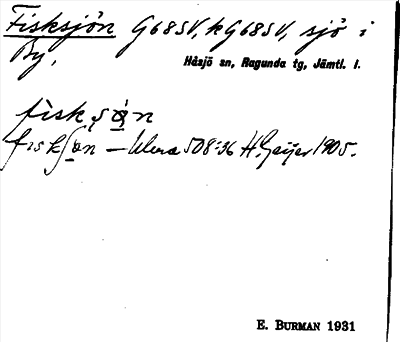 Fisksjön G68SV, kG68SV, sjö i
By,
Håsjö sn, Ragunda tg, Jämtl. l.
fisk ʂøn
fiskʃøn — Ulma 508:36 H. Geijer 1905.
E. BURMAN 1931